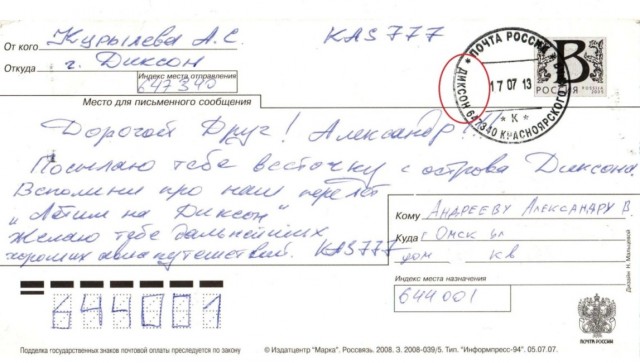 От кого Курылева А.С. KAS777
Откуда г. Диксон
Индекс места отправления
647340
ПОЧТА РОССИИ
ДИКСОН 647340 КРАСНОЯРСКОГО
17 07 13
* К *
В
РОССИЯ
Место для письменного сообщения
Дорогой Друг! Александр!!!
Посылаю тебе весточку с острова Диксона.
Вспомни про наш перелёт
"Летим на Диксон"
Желаю тебе дальнейших
хороших авиапутешествий. KAS777
Кому Андрееву Александру В.
Куда г Омск ул
дом кв
Индекс места назначения
644001
644001
ПОЧТА РОССИИ
Дизайн Н. Мальцевой
Подделка государственных знаков почтовой оплаты преследуется по закону
© Издатцентр "Марка". Россвязь. 2008. З. 2008-039/5. Тип. "Информпресс-94". 05.07.07.